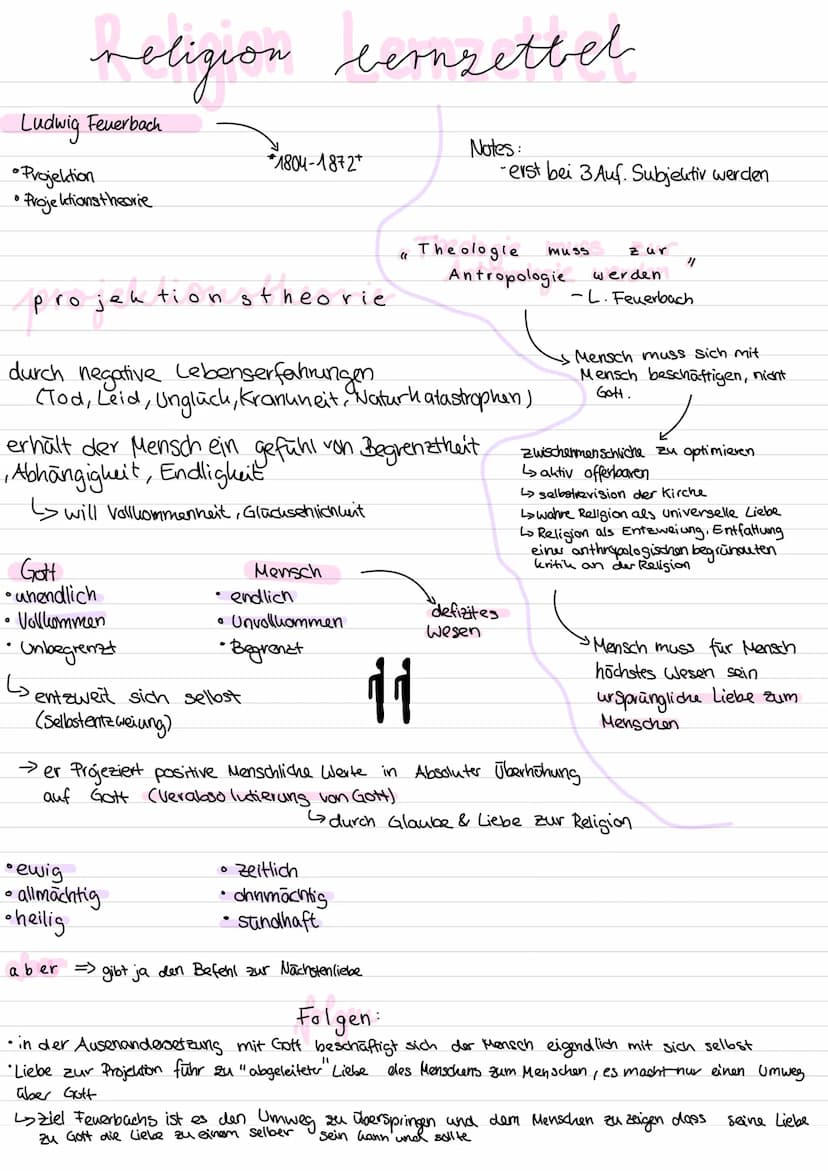 Religion Lernzettel
Ludwig Feuerbach
*1804-1872+
• Projektion
• Projektionstheorie
Notes:
- erst bei 3 Auf. Subjektiv werden
projektionstheorie
durch negative Lebenserfahrungen
(Tod, Leid, Unglück, Krankheit, Naturkatastrophen)
erhält der Mensch ein gefühl von Begrenztheit
, Abhängigkeit, Endligkeit
↳ will Vollkommenheit, Glücksehlichkeit
Gott
• unendlich
• Vollkommen
• Unbegrenzt
Mensch
• endlich
• Unvollkommen
• Begrenzt
defizites
Wesen
↳ entzweit sich selbst
(Selbstentzweiung)
→ er Projeziert positive Menschliche Werte in Absoluter Überhöhung
auf Gott (Verabsolutierung von Gott)
↳ durch Glaube & Liebe zur Religion
• ewig
• allmächtig
• heilig
• zeitlich
• ohnmächtig
• sündhaft
aber => gibt ja den Befehl zur Nächstenliebe
„Theologie muss zur
Antropologie werden"
- L. Feuerbach
Mensch muss sich mit
Mensch beschäftigen, nicht
Gott.
zwischenmenschliche zu optimieren
↳ aktiv offenbaren
↳ selbstrevision der Kirche
↳ wahre Religion als universelle Liebe
↳ Religion als Entzweiung, Entfaltung
einer anthropologischen begründeten
kritik an der Religion
Mensch muss für Mensch
höchstes Wesen sein
ursprüngliche Liebe zum
Menschen
Folgen:
• in der Ausenandersetzung mit Gott beschäftigt sich der Mensch eigendlich mit sich selbst
• Liebe zur Projektion führ zu "abgeleiteter" Liebe des Menschens zum Menschen, es macht nur einen Umweg
über Gott
↳ ziel Feuerbachs ist es den Umweg zu überspringen und dem Menschen zu zeigen dass seine Liebe
zu Gott die Liebe zu einem selber sein kann und sollte